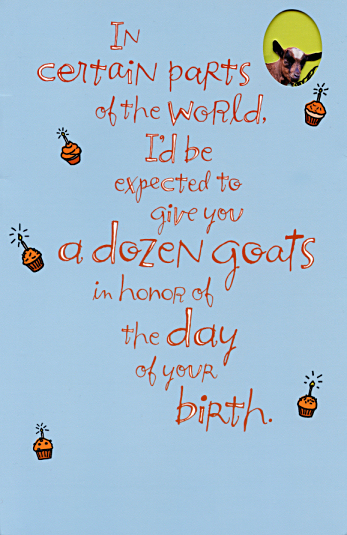 In
certain parts
of the world,
I'd be
expected to
give you
a dozen goats
in honor of
the day
of your
birth.